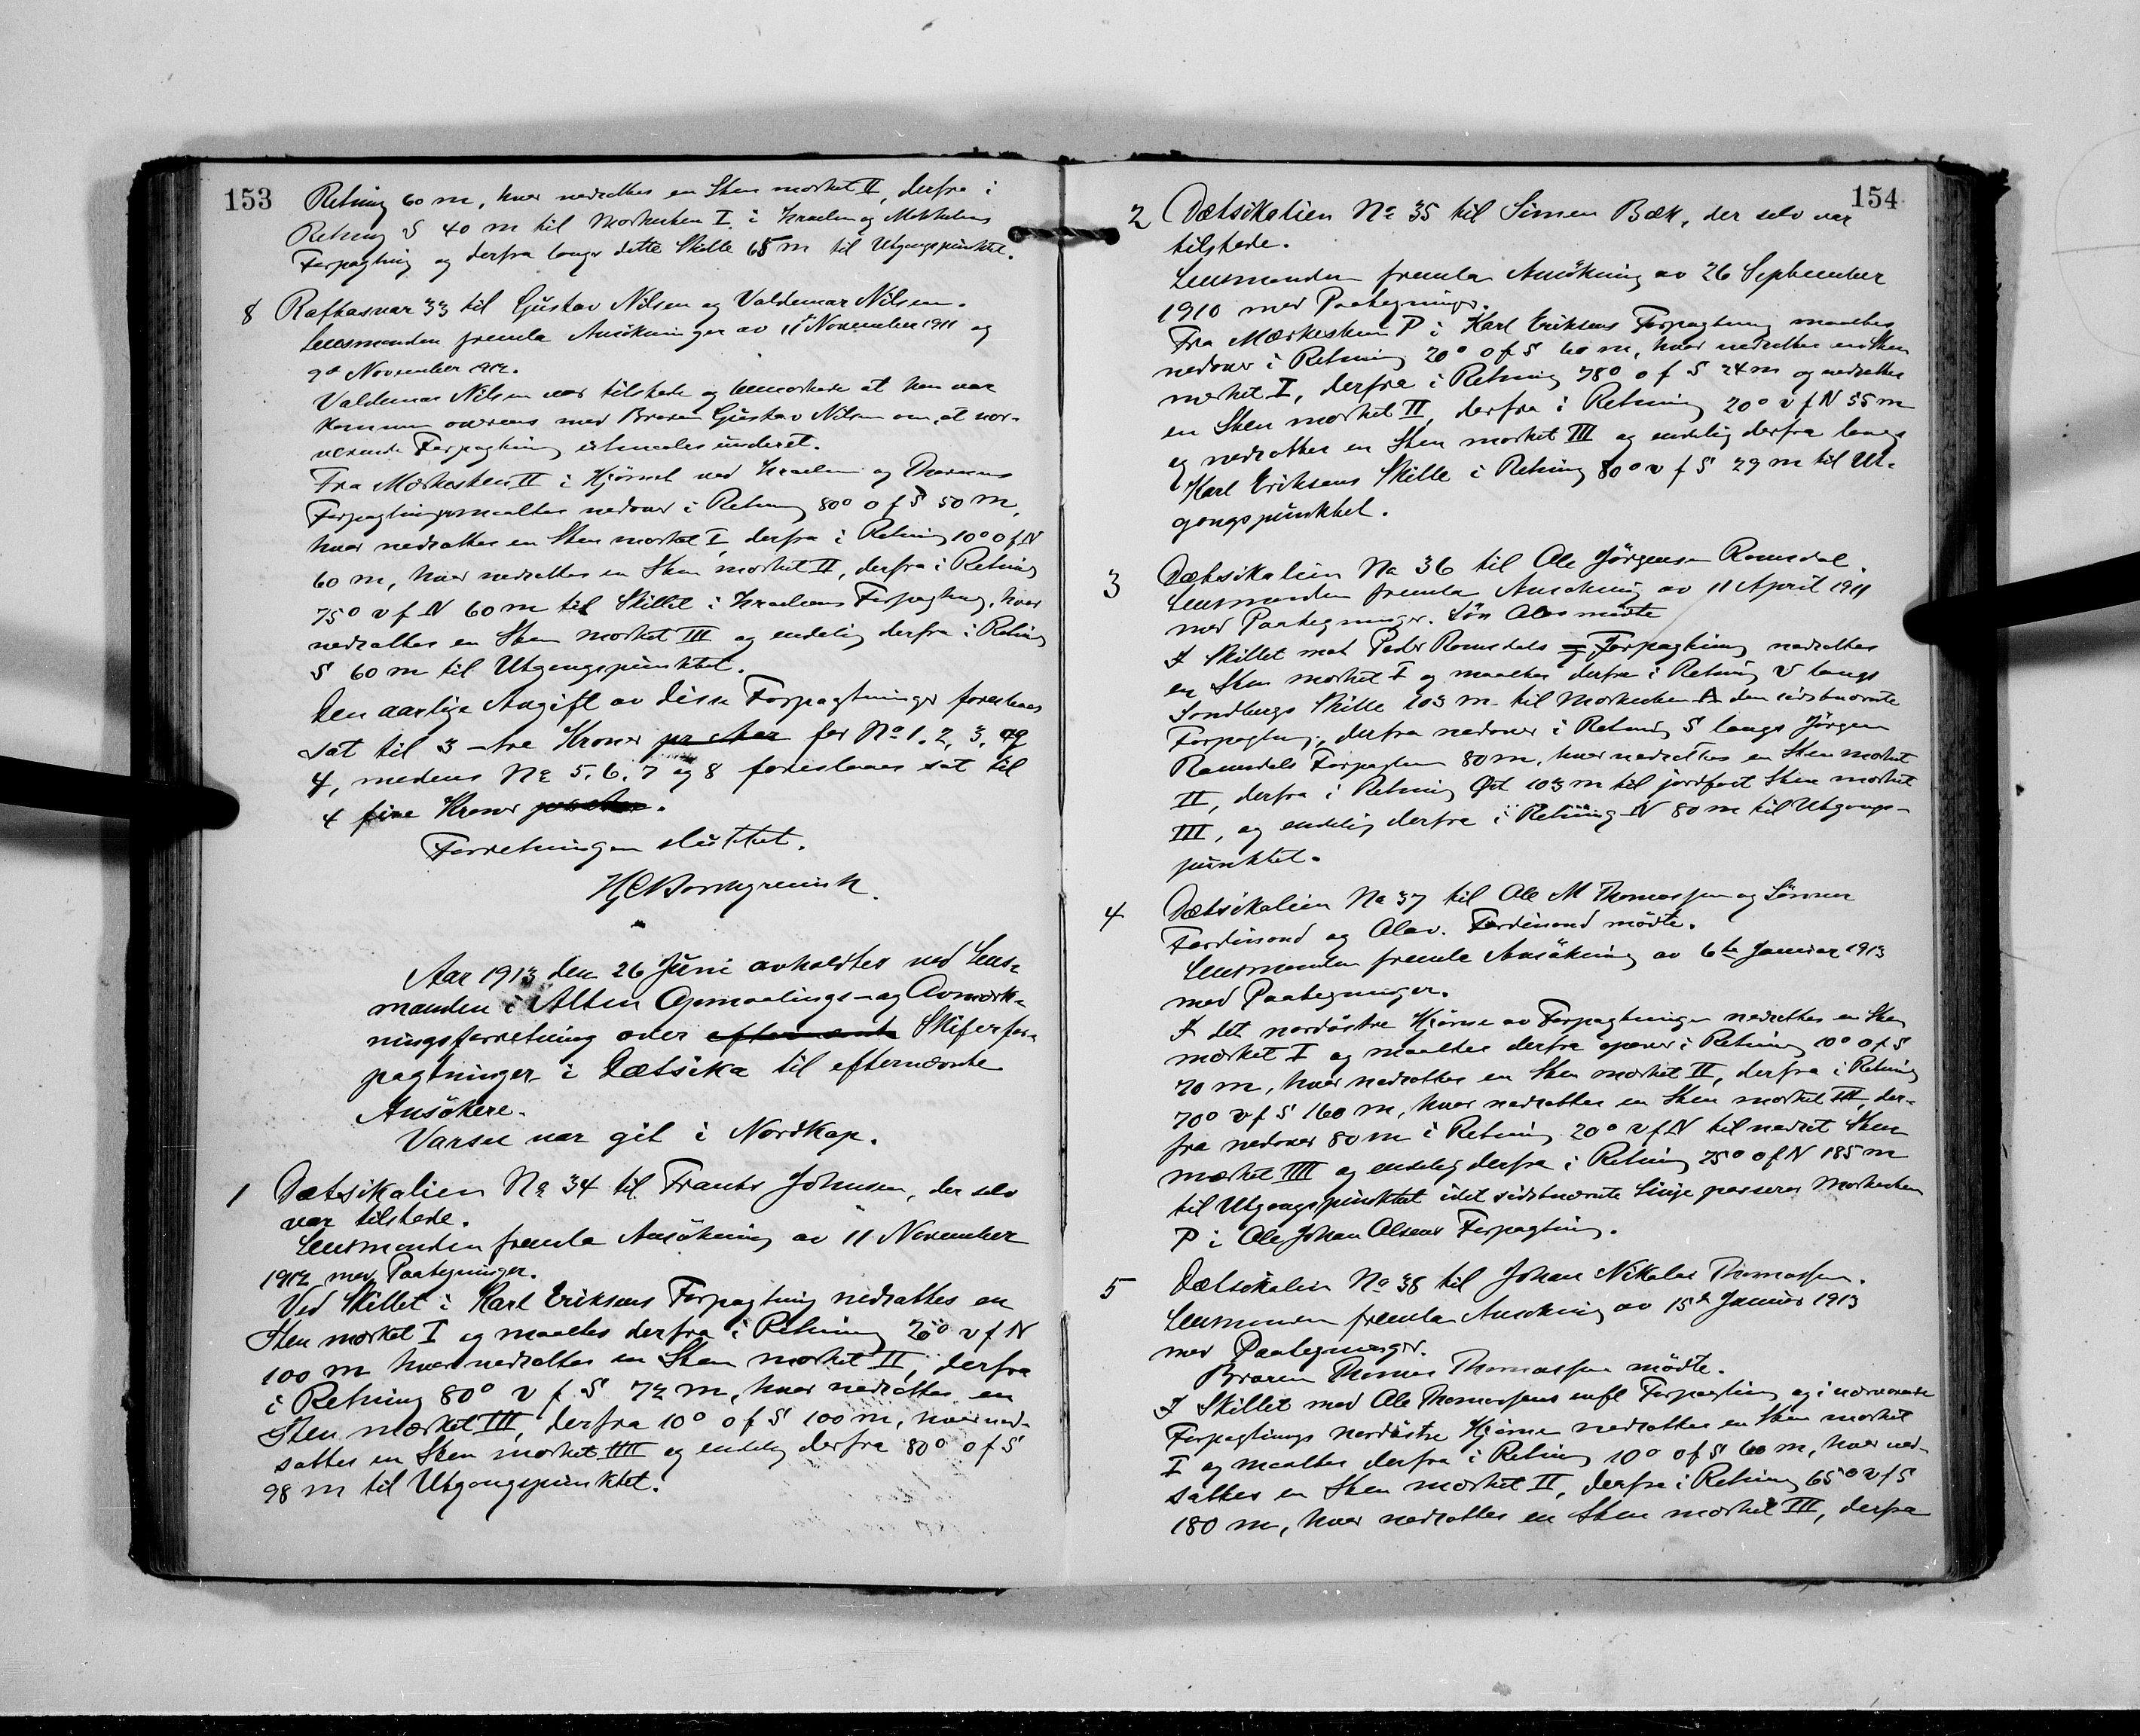 153
Retning 60 m, hvor nedsattes en Sten mærket II, derfra i
Retning S 40 m til Mærkesten I i Israelsens og Mikkelsens
Forpagtning og derfra langs dette Skille 65 m til Utgangspunktet.
8 Raftasvar 33 til Gustav Nilsen og Valdemar Nilsen.
Lensmanden fremla Ansökninger av 11te November 1911 og
9de November 1912.
Valdemar Nilsen var tilstede og bemærkede at han var
kommen overens med Broren Gustav Nilsen om, at nær-
værende Forpagtning utmaales underet.
Fra Mærkesten II i Hjörnet ved Israelsens og
Forpagtninger maaltes nedover i Retning 80° o f S 50 m,
hvor nedsattes en Sten mærket I, derfra i Retning 10° o f N
60 m, hvor nedsattes en Sten mærket II, derfra i Retning
75° v f N 60 m til Skillet i Israelsens Forpagtning, hvor
nedsattes en Sten mærket III og endelig derfra i Retning
S 60 m til Utgangspunktet.
Den aarlige Avgift av disse Forpagtninger foreslaaes
sat til 3 - tre Kroner pr Aar for No 1, 2, 3, og
4, medens No 5, 6, 7 og 8 foreslaaes sat til
4 fire Kroner pr Aar.
Forretningen sluttet.
H C Borchgrevink.
Aar 1913 den 26 Juni avholdtes ved Lens-
manden i Alten Opmaalings- og Avmærk-
ningsforretning over efternævnte Skiferfor-
pagtninger i Dætsika til efternævnte
Ansökere.
Varsel var git i Nordkap.
1 Dætsikalien No 34 til Frants Johnsen, der selv
var tilstede.
Lensmanden fremla Ansökning av 11 November
1912 med Paategninger.
Ved Skillet i Karl Eriksens Forpagtning nedsattes en
Sten mærket I og maaltes derfra i Retning 20° v f N
100 m hvor nedsattes en Sten mærket II, derfra
i Retning 80° v f S 72 m, hvor nedsattes en
Sten mærket III, derfra 10° o f S 100 m, hvor ned-
sattes en Sten mærket IIII og endelig derfra 80° o f S
98 m til Utgangspunktet.
154
2 Dætsikalien No 35 til Simen Bæk, der selv var
tilstede.
Lensmanden fremla Ansökning av 26 September
1910 med Paategninger.
Fra Mærkesten P i Karl Eriksens Forpagtning maaltes
nedover i Retning 20° o f S 60 m, hvor nedsattes en Sten
mærket I, derfra i Retning 78° o f S 24 m og nedsattes
en Sten mærket II, derfra i Retning 20° v f N 55 m
og nedsattes en Sten mærket III og endelig derfra langs
Karl Eriksens Skille i Retning 80° v f S 29 m til Ut-
gangspunktet.
3 Dætsikalien No 36 til Ole Jörgensen Romsdal.
Lensmanden fremla Ansökning av 11 April 1911
med Paategninger. Sön Oles mödte
I Skillet mot Peder Romsdals Forpagtning nedsattes
en Sten mærket I og maaltes derfra i Retning V langs
Sandbergs Skille 103 m til Mærkesten A den sidstnævnte
Forpagtning, derfra nedover i Retning S langs Jörgen
Romsdals Forpagtn 80 m, hvor nedsattes en Sten mærket
II, derfra i Retning Öst 103 m til jordfast Sten mærket
III, og endelig derfra i Retning N 80 m til Utgangs-
punktet.
4 Dætsikalien No 37 til Ole M Thomassen og Sönner
Ferdinand og Olav. Ferdinand mödte.
Lensmanden fremla Ansökning av 6te Januar 1913
med Paategninger.
I det nordöstre Hjörne av Forpagtningen nedsattes en Sten
mærket I og maaltes derfra opover i Retning 10° o f S
70 m, hvor nedsattes en Sten mærket II, derfra i Retning
70° v f S 160 m, hvor nedsattes en Sten mærket III, der-
fra nedover 80 m i Retning 20° v f N til nedsat Sten
mærket IIII og endelig derfra i Retning 75° o f N 185 m
til Utgangspunktet idet sidstnævnte Linje passerer Mærkesten
P i Ole Johan Olsens Forpagtning.
5 Dætsikalien No 38 til Johan Nikolai Thomassen.
Lensmanden fremla Ansökning av 15de Januar 1913
med Paategninger.
Broren Thomas Thomassen mödte.
I Skillet med Ole Thomassens Forpagtning og i nærværende
Forpagtnings nordöstre Hjörne nedsattes en Sten mærket
I og maaltes derfra i Retning 10° o f S 60 m, hvor ned-
sattes en Sten mærket II, derfra i Retning 65° v f S
180 m, hvor nedsattes en Sten mærket III, derfra